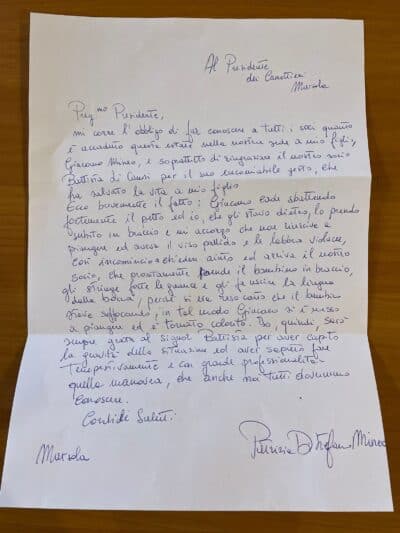 Al Presidente
dei Canottieri
Marsala
Preg.mo Presidente,
mi corre l'obbligo di far conoscere a tutti i soci quanto
è accaduto questa estate nella nostra sede a mio figlio,
Giacomo Mineo, e soprattutto di ringraziare il nostro socio
Battista di per il suo encomiabile gesto, che
ha salvato la vita a mio figlio
Ecco brevemente il fatto: Giacomo cade sbattendo
fortemente il petto ed io, che gli stavo dietro, lo prendo
subito in braccio e mi accorgo che non riusciva a
piangere ed aveva il viso pallido e le labbra violacee,
così incomincio a chiedere aiuto ed arriva il nostro
socio, che prontamente prende il bambino in braccio,
gli stringe forte le guance e gli fa uscire la lingua
dalla bocca, perché si era reso conto che il bambino
stava soffocando, in tal modo Giacomo si è messo
a piangere ed è tornato colorito. Io, quindi, sarò
sempre grata al signor Battista per aver capito
la gravità della situazione ed aver saputo fare
tempestivamente e con grande professionalità
quella manovra, che anche noi tutti dovremmo
conoscere.
Cordiali Saluti.
Marsala
Patrizia Di Stefano Mineo